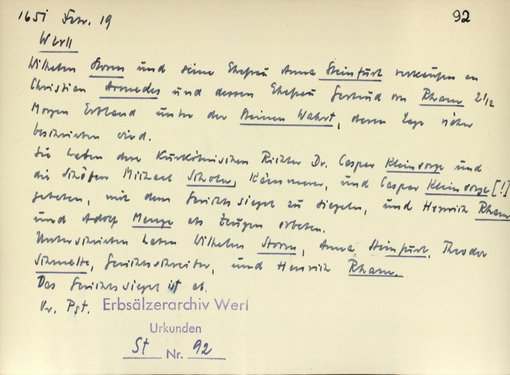 1651 Febr. 19 92
Werl
Wilhelm Storm und seine Ehefrau Anna Steinfurt verkaufen an
Christian Armedes und dessen Ehefrau Gertrud von Rham 2 1/2
Morgen Erbland unter der Steinen Wahrt, deren Lage näher
beschrieben wird.
Sie haben den Kurkölnischen Richter Dr. Caspar Kleinsorge und
die Schöffen Michael Scholer, Kämmerer, und Caspar Kleinsorge [!]
gebeten, mit dem Gerichtssiegel zu siegeln, und Henrich Rham
und Adolf Menge als Zeugen erbeten.
Unterschrieben haben Wilhelm Storm, Anna Steinfurt, Theodor
Schmelte, Gerichtsschreiber, und Henrich Rham.
Das Gerichtssiegel ist ab.
Or. Pgt. Erbsälzerarchiv Werl
Urkunden
St Nr. 92